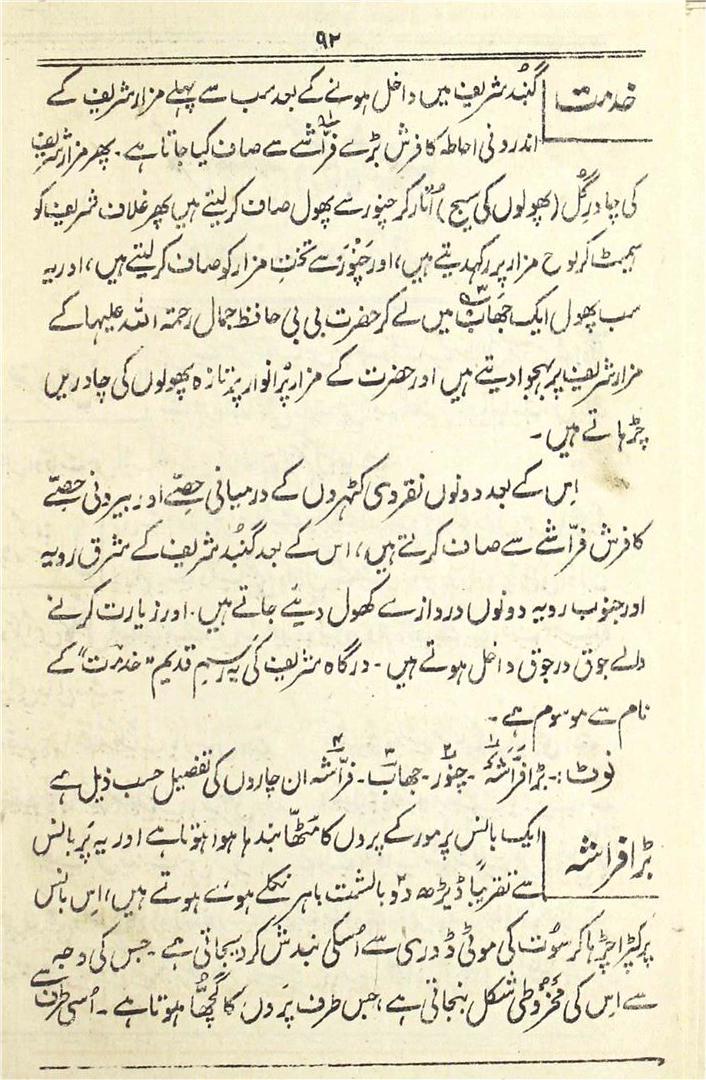 ۹۲
خدمت
گنبد شریف میں داخل ہونے کے بعد سب سے پہلے مزار شریف کے
اندرونی احاطہ کا فرش بڑے فرّاشے سے صاف کیا جاتا ہے۔ پھر مزار شریف
کی چادرِ گُل (پھولوں کی سیج) اُتار کر چنور سے پھول صاف کر لیتے ہیں پھر غلاف شریف کو
سمیٹ کر لوح مزار پر رکھدیتے ہیں، اور چَنْوَر سے تختِ مزار کو صاف کر لیتے ہیں، اور یہ
سب پھول ایک جھاب میں لے کر حضرت بی بی حافظ جمال رحمۃ اللہ علیہا کے
مزار شریف پر بھجوا دیتے ہیں اور حضرت کے مزار پُر انوار پر تازہ پھولوں کی چادریں
چڑہاتے ہیں۔
اِس کے بعد دونوں نقروی کٹہروں کے درمیانی حِصّے اور بیرونی حِصّے
کا فرش فرّاشے سے صاف کرتے ہیں، اس کے بعد گنبد شریف کے مشرق رویہ
اور جنوب رویہ دونوں دروازے کھول دیئے جاتے ہیں۔ اور زیارت کرنے
والے جوق در جوق داخل ہوتے ہیں۔ درگاہ شریف کی یہ رسمِ قدیم "خدمت" کے
نام سے موسوم ہے۔
نوٹ:۔ بڑا فرّاشَہ۱۔ چنوَر۲۔ جھاب۳۔ فرّاشہ۴ ان چاروں کی تفصیل حسب ذیل ہے
بڑا فراشہ
ایک بانس پر مور کے پروں کا مٹھّا بندہا ہوا ہوتا ہے اور یہ پَر بانس
سے تقریباً ڈیڑھ دو بالشت باہر نکلے ہوئے ہوتے ہیں، اِس بانس
پر کپڑا چڑہا کر سُوت کی موٹی ڈوری سے اُسکی بندش کر دیجاتی ہے۔ جس کی وجہ
سے اِس کی مخرُوطی شکل بنجاتی ہے، جس طرف پَروں کا گُچھّا ہوتا ہے۔ اُسی طرف سے